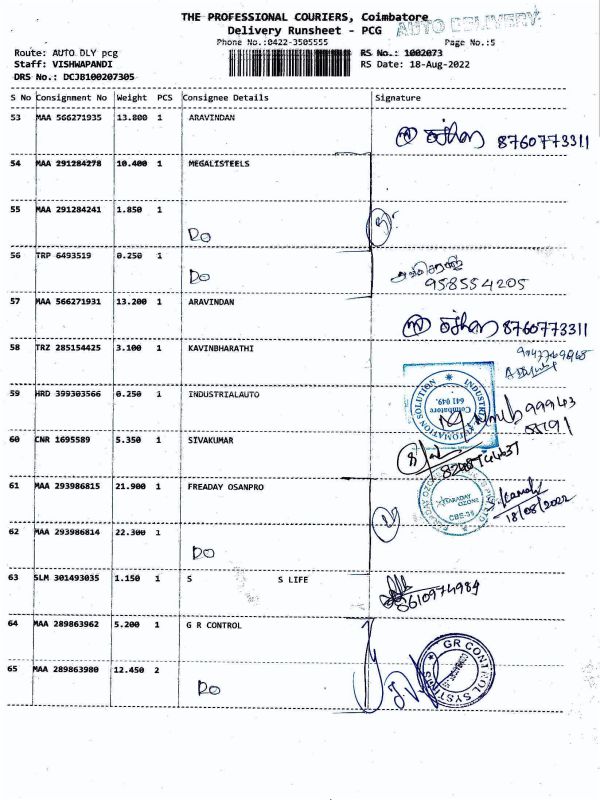 THE PROFESSIONAL COURIERS, Coimbatore
AUTO DELIVERY
Delivery Runsheet - PCG
Phone No.:0422-3505555 Page No.:5
Route: AUTO DLY pcg RS No.: 1002073
Staff: VISHWAPANDI RS Date: 18-Aug-2022
DRS No.: DCJB100207305
S No Consignment No Weight PCS Consignee Details Signature
53 MAA 566271935 13.800 1 ARAVINDAN
8760773311
54 MAA 291284278 10.400 1 MEGALISTEELS
55 MAA 291284241 1.850 1
Do
56 TRP 6493519 0.250 1
Do 958554205
57 MAA 566271931 13.200 1 ARAVINDAN
8760773311
58 TRZ 285154425 3.100 1 KAVINBHARATHI
59 HRD 399303566 0.250 1 INDUSTRIALAUTO
INDUSTRI AUTOMATION SOLUTION
Coimbatore
641 049.
60 CNR 1695589 5.350 1 SIVAKUMAR
61 MAA 293986815 21.900 1 FREADAY OSANPRO
FARADAY OZONE
CBE-36
18/08/2022
62 MAA 293986814 22.300 1
Do
63 SLM 301493035 1.150 1 S S LIFE
8610974984
64 MAA 289863962 5.200 1 G R CONTROL
GR CONTROL SYSTEMS
65 MAA 289863980 12.450 2
Do